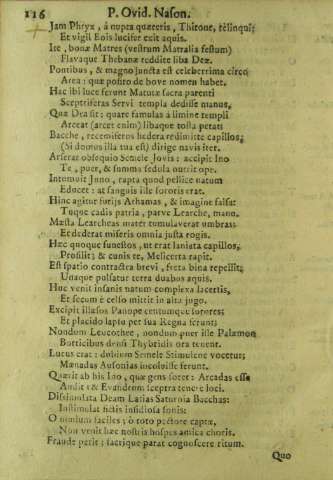 116 P. Ovid. Nason.
Jam Phryx, à nupta quæreris, Thitone, relinqui;
Et vigil Eois lucifer exit aquis.
Ite, bonæ Matres (vestrum Matralia festum)
Flavaque Thebanæ reddite liba Deæ.
Pontibus, & magno juncta est celeberrima circo
Area: quæ posito de bove nomen habet.
Hac ibi luce ferunt Matutæ sacra parenti
Sceptriferas Servi templa dedisse manus.
Quæ Dea sit: quare famulas à limine templi
Arceat (arcet enim) libaque tosta petat:
Bacche, racemiferos hedera redimite capillos,
(Si domus illa tua est) dirige navis iter.
Arserat obsequio Semele Jovis: accipit Ino
Te, puer, & summa sedula nutrit ope.
Intumuit Juno, rapta quod pellice natum
Educet: at sanguis ille sororis erat.
Hinc agitur furiis Athamas, & imagine falsa:
Tuque cadis patria, parve Learche, manu.
Mæsta Learcheas mater tumulaverat umbras:
Et dederat miseris omnia justa rogis.
Hæc quoque funestos, ut erat laniata capillos,
Prosilit; & cunis te, Melicerta rapit.
Est spatio contracta brevi, freta bina repellit;
Unaque pulsatur terra duabus aquis.
Huc venit insanis natum complexa lacertis,
Et secum è celso mittit in alta jugo.
Excipit illæsos Panope centumque sorores:
Et placido lapsu per sua Regna ferunt;
Nondum Leucothee, nondum puer ille Palæmon
Vorticibus densi Thybridis ora tenent.
Lucus erat: dubium Semelæ Stimulæne vocetur;
Mænadas Ausonias incoluisse ferunt.
Quærit ab his Ino, quæ gens foret: Arcadas esse
Audit: & Evandrum sceptra tenere loci.
Dissimulata Deam Latias Saturnia Bacchas
Instimulat fictis insidiosa sonis:
O nimium faciles; ò toto pectore captæ,
Non venit hæc nostris hospes amica choris.
Fraude petit: sacrique parat cognoscere ritum.
Quo